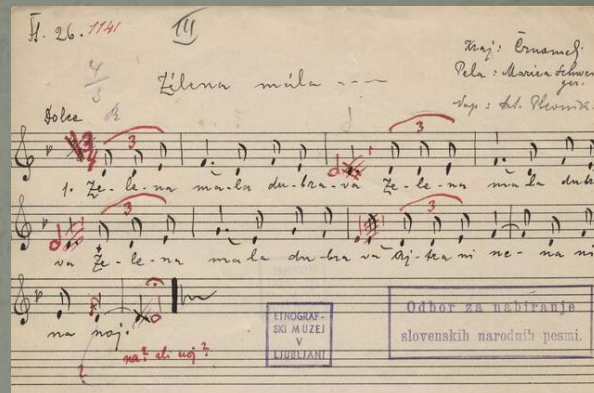 26. 1141
III
Kraj: Črnomelj.
Zélena mála ---
Pela: Marica Schweiger.
Zap: Ant. Plevnik.
4
3
Dolce
3 3
1. Že-le-na ma-la du-bra-va že-le-na ma-la dub
3 3
va že-le-na ma-la du-bra va ni ne-na ni
na noj.
na? ali noj?
ETNOGRAF-
SKI MUZEJ
V
LJUBLJANI
Odbor za nabiranje
slovenskih narodnih pesmi.